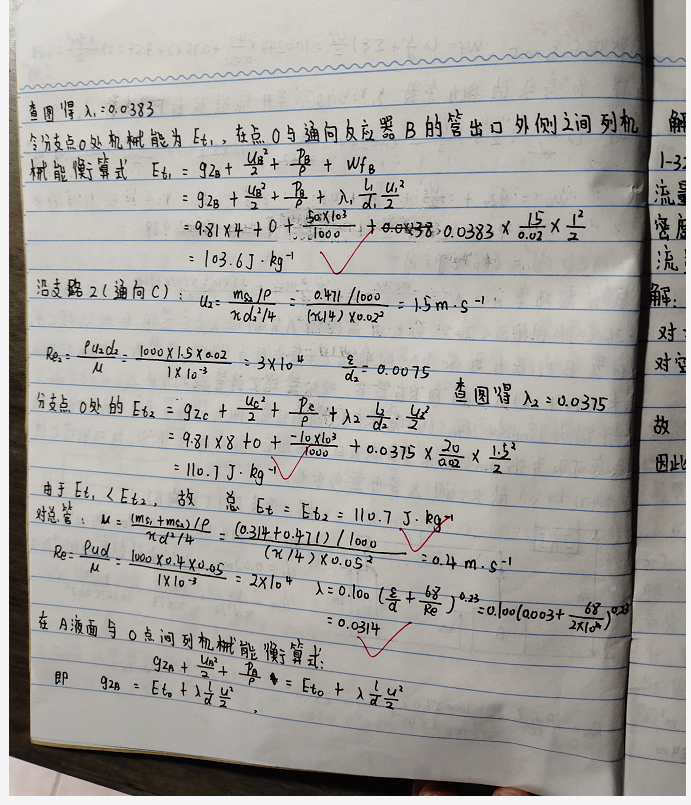 查图得 λ₁=0.0383
令分支点0处机械能为 Et₁, 在点0与通向反应器 B 的管出口外侧之间列机
械能衡算式 Et₁ = gzB + uB²/2 + PB/ρ + WfB
= gzB + uB²/2 + PB/ρ + λ₁ l₁/d₁ u₁²/2
= 9.81×4 + 0 + 50×10³/1000 + 0.0383 × 15/0.02 × 1²/2
= 103.6 J·kg⁻¹
沿支路2(通向C): u₂ = (ms₂/ρ)/(πd₂²/4) = (0.471/1000)/((π/4)×0.02²) = 1.5 m·s⁻¹
Re₂ = ρu₂d₂/μ = 1000×1.5×0.02/1×10⁻³ = 3×10⁴ ε/d₂ = 0.0075
查图得 λ₂ = 0.0375
分支点0处的 Et₂ = gzC + uC²/2 + PC/ρ + λ₂ l₂/d₂ · u₂²/2
= 9.81×8 + 0 + -10×10³/1000 + 0.0375 × 20/0.02 × 1.5²/2
= 110.7 J·kg⁻¹
由于 Et₁ < Et₂, 故 总 Et = Et₂ = 110.7 J·kg⁻¹
对总管: u = ((ms₁+ms₂)/ρ)/(πd²/4) = ((0.314+0.471)/1000)/((π/4)×0.05²) = 0.4 m·s⁻¹
Re = ρud/μ = 1000×0.4×0.05/1×10⁻³ = 2×10⁴ λ = 0.100 (ε/d + 68/Re)^0.23 = 0.100(0.003 + 68/2×10⁴)^0.23
= 0.0314
在A液面与0点间列机械能衡算式:
gzA + uA²/2 + PA/ρ = Et₀ + λ l/d u²/2
即 gzA = Et₀ + λ l/d u²/2
解
1-3
流量
密度
流
解:
对
对空
故
因此